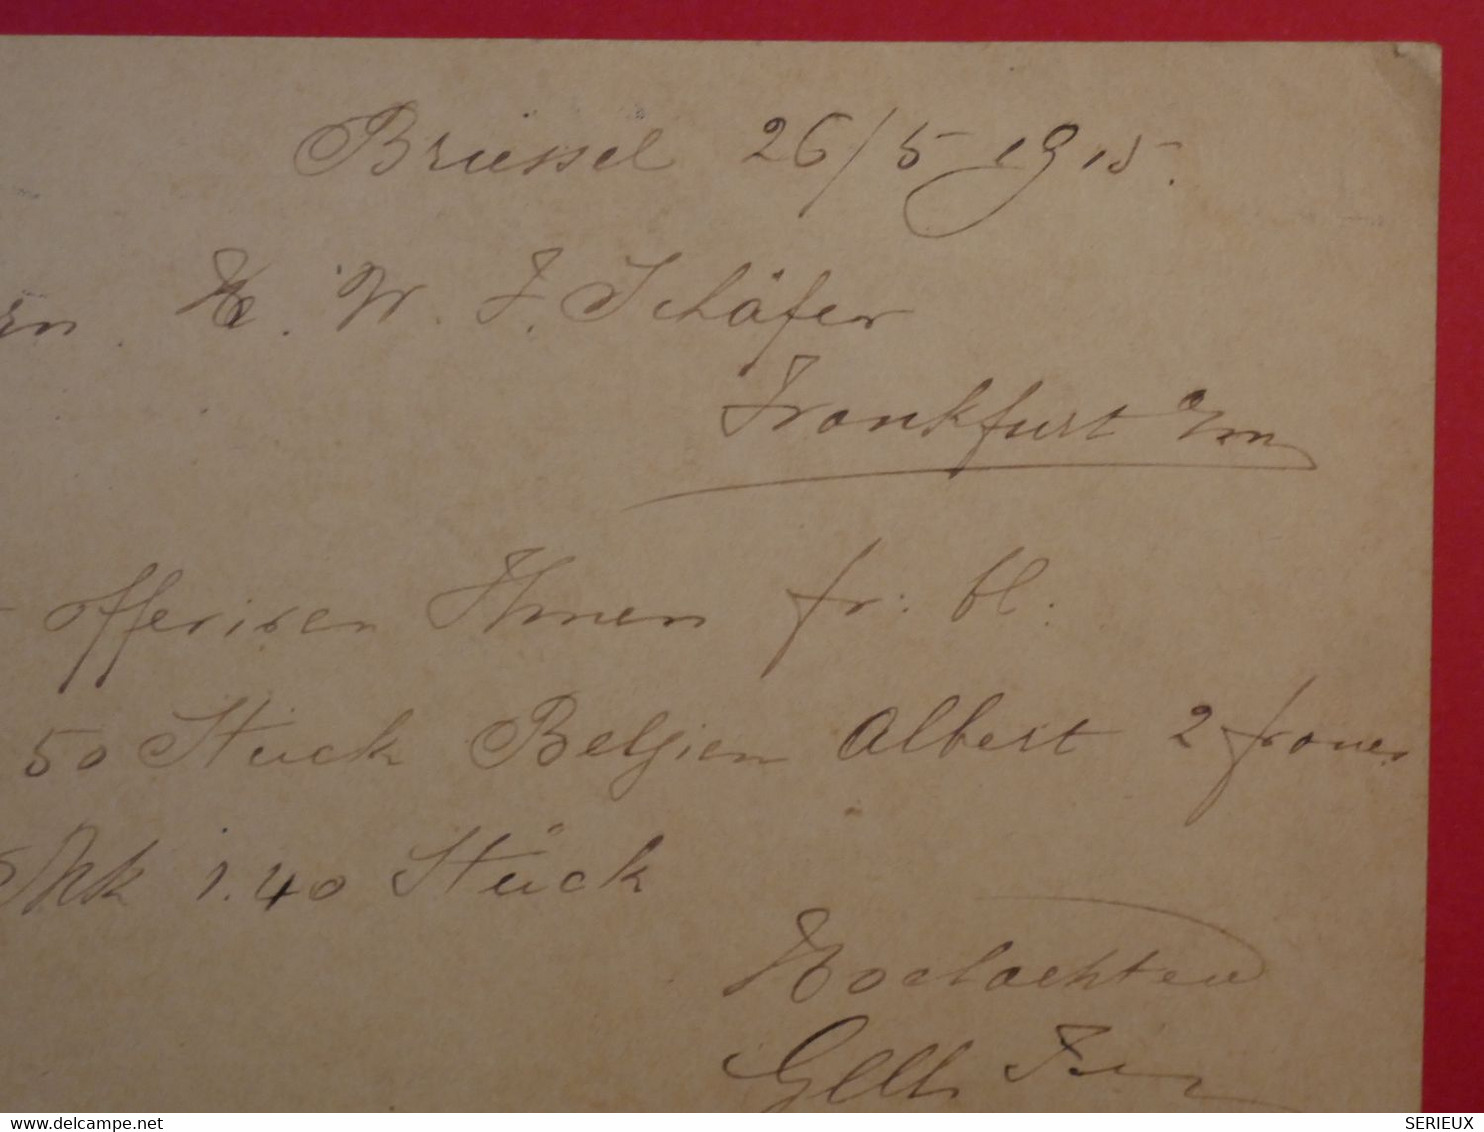 Brüssel 26/5 1915.
H. W. F. Schäfer
Frankfurt a/m
offeriren Ihnen fr: bl:
50 Stück Belgien Albert 2 francs
Mk 1.40 Stück
Hochachtend
SERIEUX